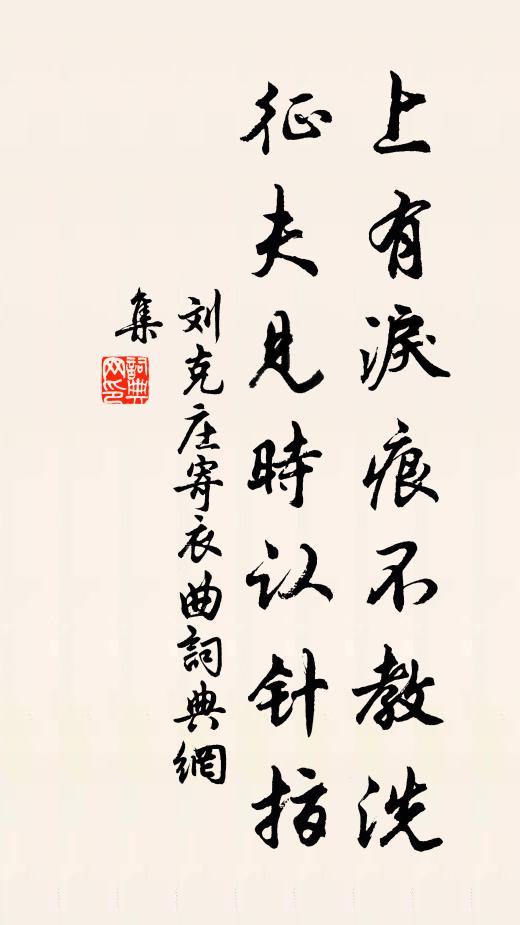 上有淚痕不教洗
征夫見時认针指
刘克庄寄衣曲詞典網
集
詞典网印